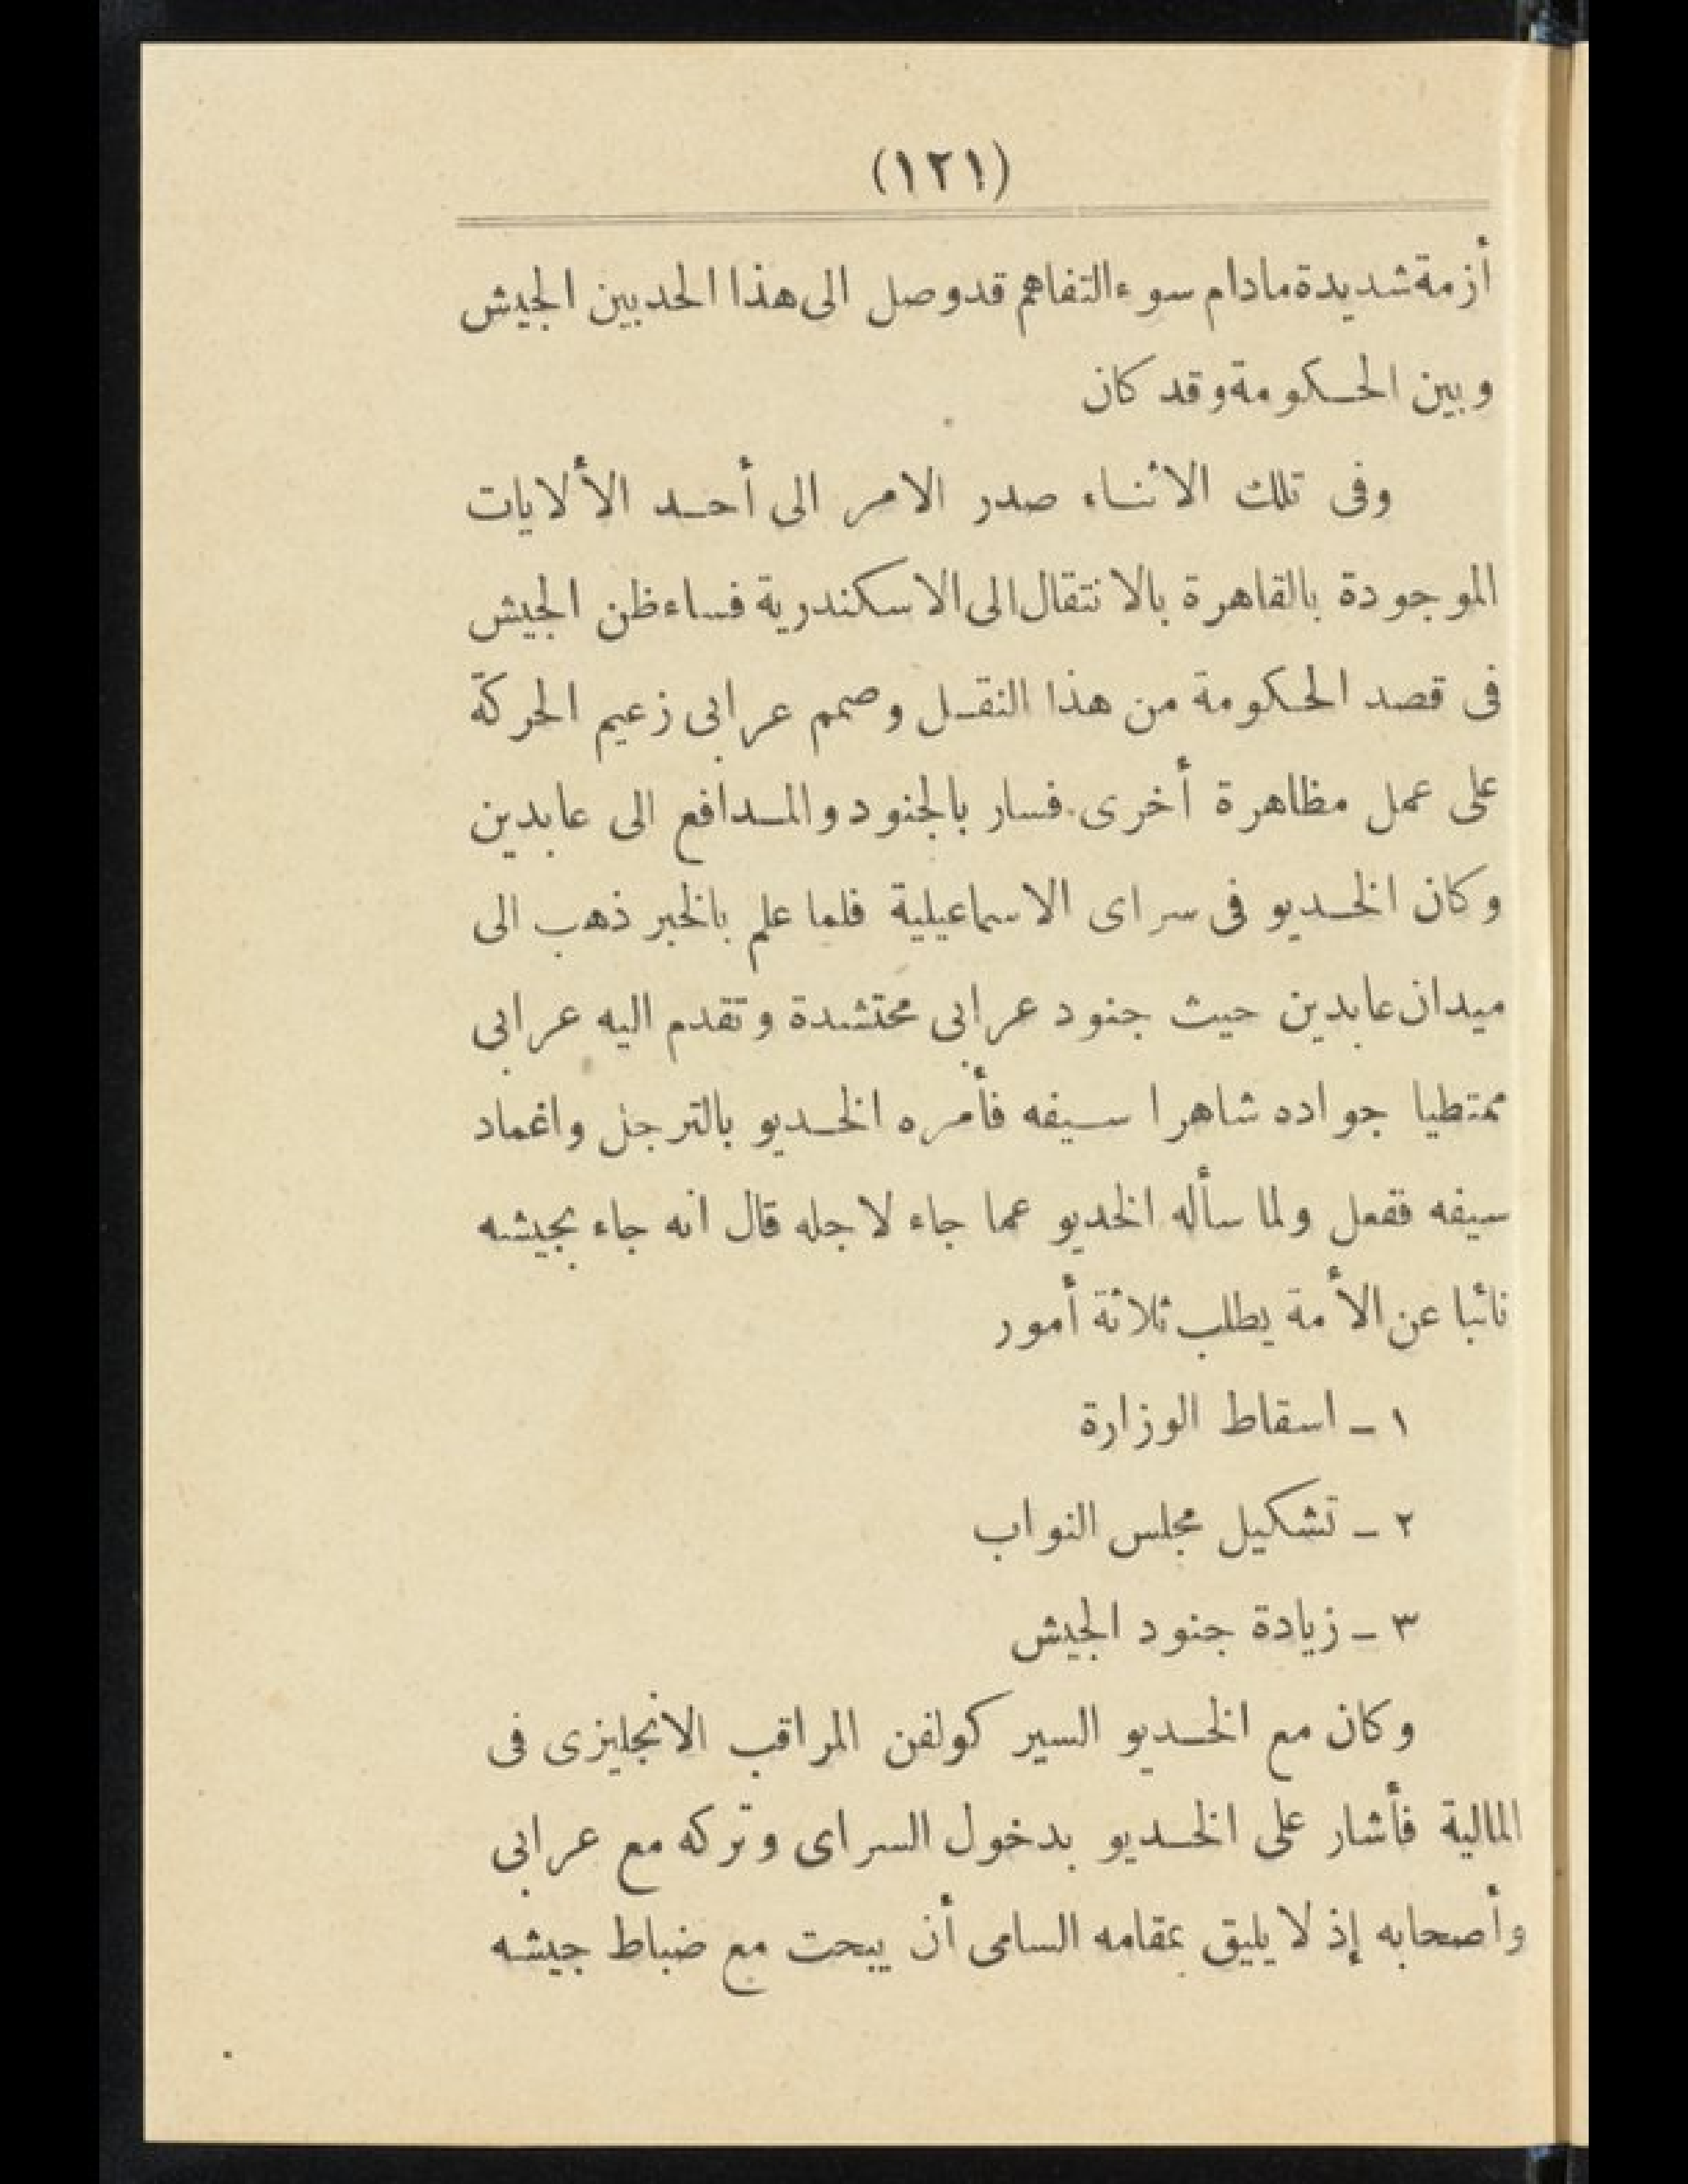 (١٢١)
أزمة شديدة مادام سوء التفاهم قد وصل الى هذا الحد بين الجيش
وبين الحكومة وقد كان
وفى تلك الاثناء صدر الامر الى أحد الألايات
الموجودة بالقاهرة بالانتقال الى الاسكندرية فساء ظن الجيش
فى قصد الحكومة من هذا النقل وصمم عرابى زعيم الحركة
على عمل مظاهرة أخرى. فسار بالجنود والمدافع الى عابدين
وكان الخديو فى سراى الاسماعيلية فلما علم بالخبر ذهب الى
ميدان عابدين حيث جنود عرابى محتشدة وتقدم اليه عرابى
ممتطيا جواده شاهرا سيفه فأمره الخديو بالترجل واغماد
سيفه ففعل ولما سأله الخديو عما جاء لاجله قال انه جاء بجيشه
نائبا عن الأمة يطلب ثلاثة أمور
١ - اسقاط الوزارة
٢ - تشكيل مجلس النواب
٣ - زيادة جنود الجيش
وكان مع الخديو السير كولفن المراقب الانجليزى فى
المالية فأشار على الخديو بدخول السراى وتركه مع عرابى
وأصحابه إذ لا يليق بمقامه السامى أن يبحت مع ضباط جيشه